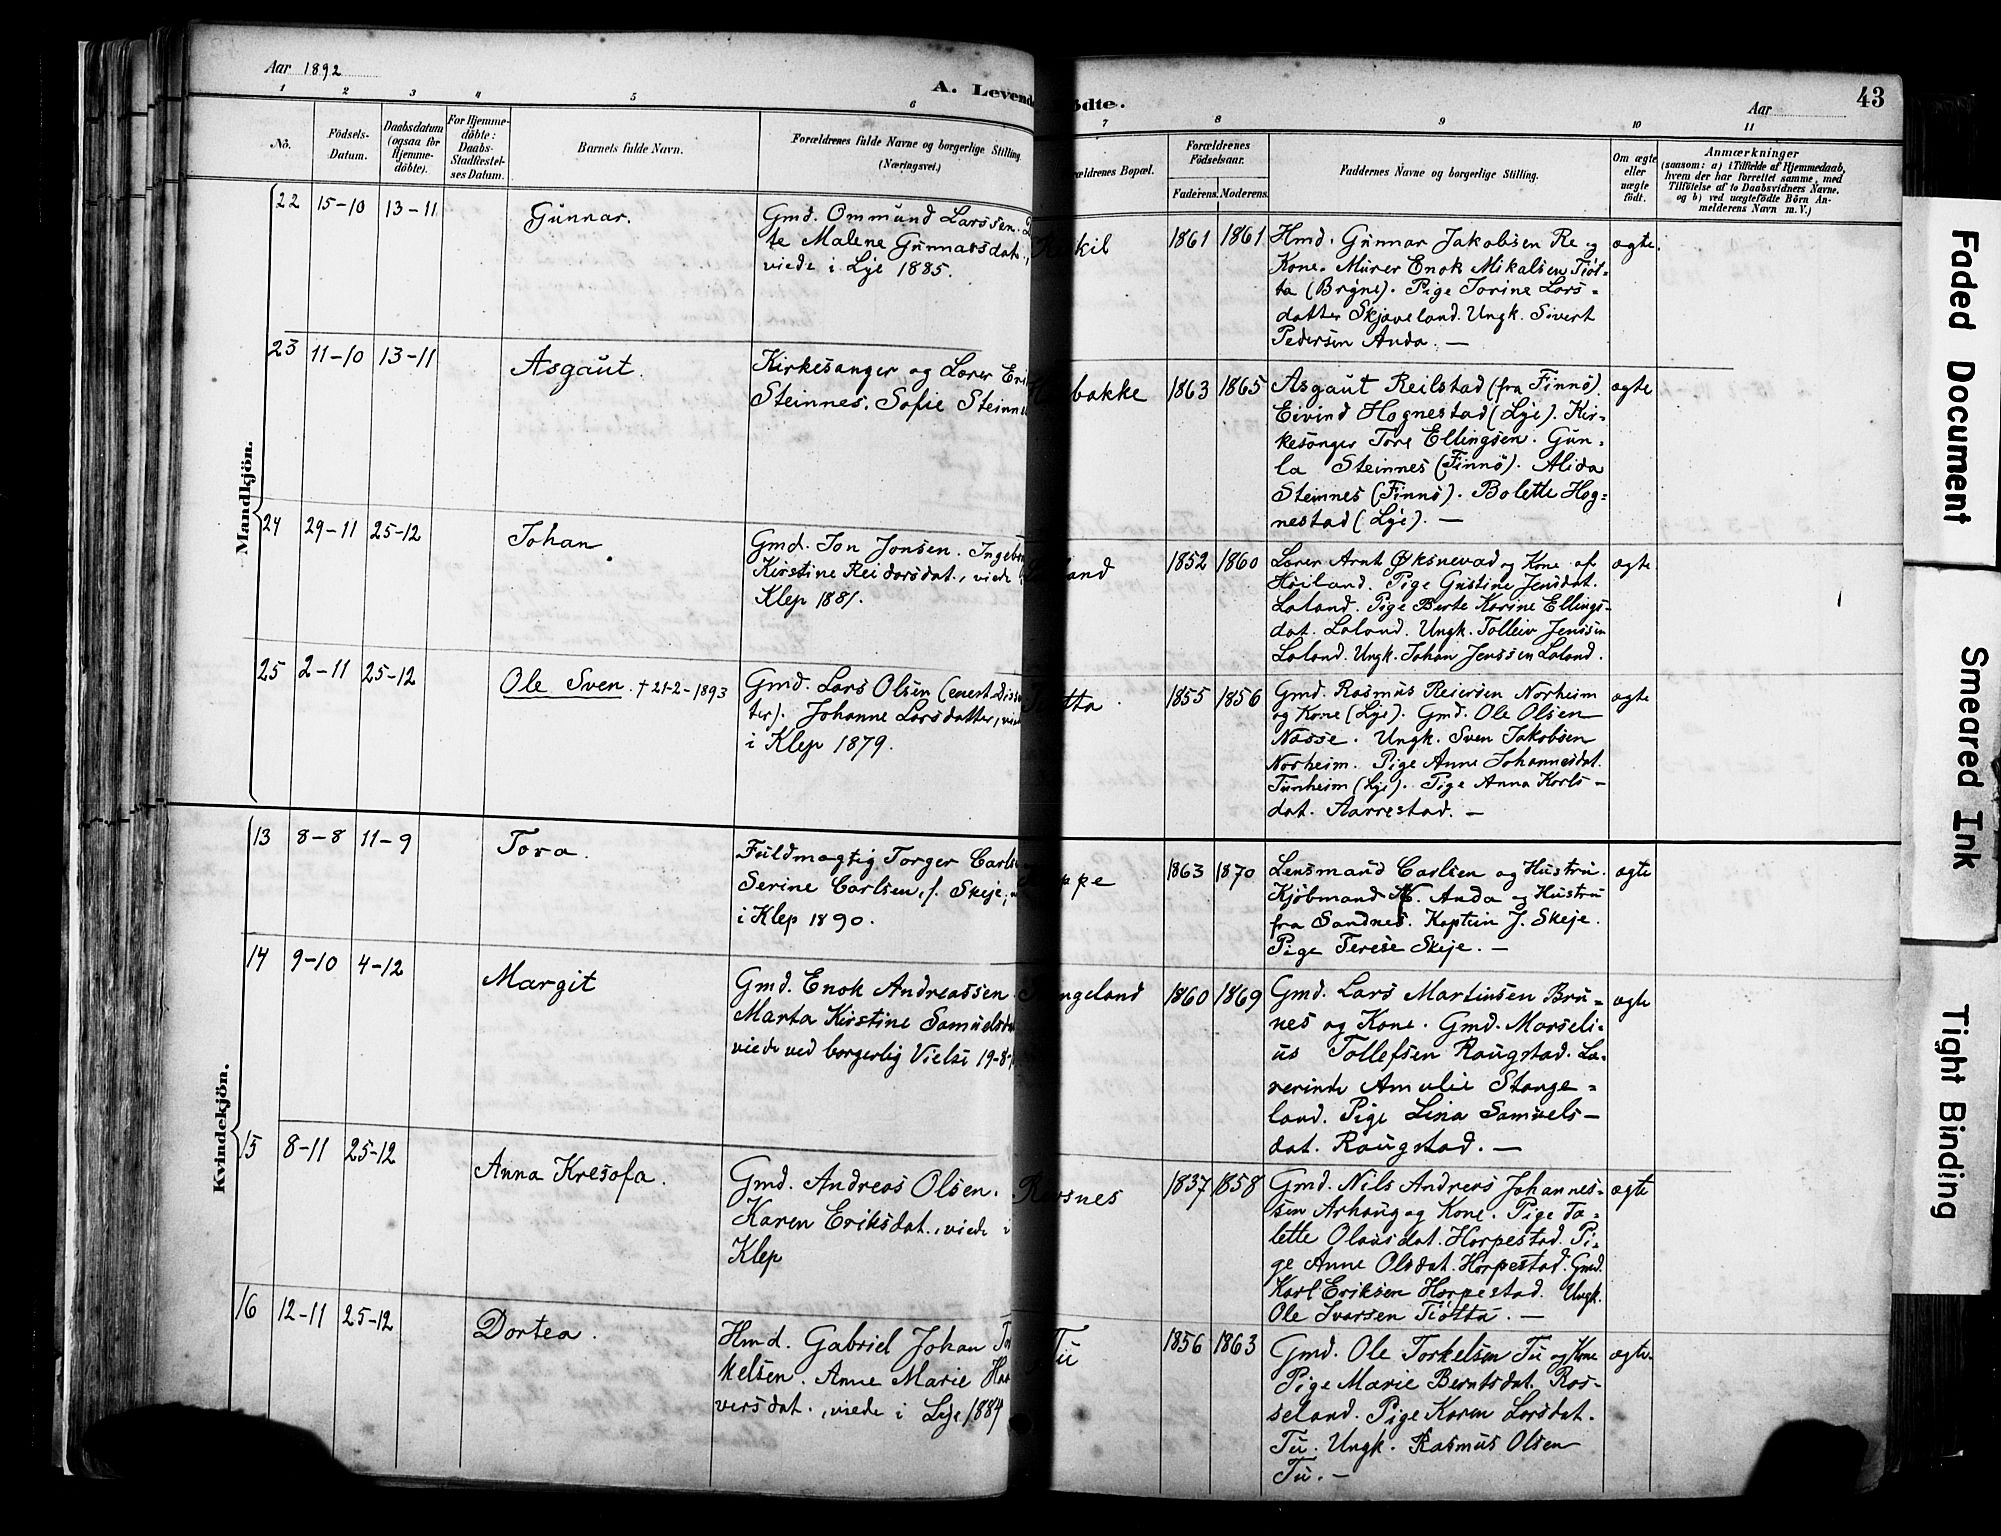 Aar 1892
A. Levende Fødte.
Aar
43
1 2 3 4 5 6 7 8 9 10 11
No.
Födsels-
Datum.
Daabsdatum
(ogsaa for
Hjemme-
döbte).
For Hjemme-
döbte:
Daabs-
Stadfæstel-
ses Datum.
Barnets fulde Navn.
Forældrenes fulde Navne og borgerlige Stilling
(Næringsvei.)
rældrenes Bopæl.
Forældrenes
Födselsaar.
Faderens. Moderens.
Faddernes Navne og borgerlige Stilling.
Om ægte
eller
uægte
født.
Anmærkninger
(saasom: a) i Tilfælde af Hjemmedaab,
hvem der har forrettet samme, med
Tilföielse af to Daabsvidners Navne.
og b) ved uægtefödte Börn An-
melderens Navn m. V.)
Mandkjön.
22 15-10 13-11 Gunnar.
Gmd. Ommund Larssen.
te Malene Gunnarsdat.,
viede i Lye 1885.
1861 1861
Hmd. Gunnar Jakobsen Re og
Kone. Murer Enok Mikalsen Tiöt-
ta (Bryne). Pige Torine Lars-
datter Skjæveland. Ungk. Sivert
Pedersen Anda. —
ægte.
23 11-10 13-11 Asgaut.
Kirkesanger og Lærer
Steinnes, Sofie
bakke
1863 1865
Asgaut Reilstad (fra Finnö).
Eivind Hognestad (Lye). Kir-
kesanger Tore Ellingsen. Gun-
la Steinnes (Finnö). Alida
Steinnes (Finnö). Bolette Hog-
nestad (Lye). —
ægte
24 29-11 25-12 Johan
Gmd. Jon Jonsen.
Kirstine Reidarsdat., viede
Klep 1881.
1852 1860
Lærer Arnt Øksnevad og Kone af
Höiland. Pige Gustine Jensdat.
Laland. Pige Berte Karine Ellings-
dat. Laland. Ungk. Tolleiv Jenssen
Laland. Ungk. Johan Jenssen Laland.
ægte
25 2-11 25-12 Ole Sven. † 21-2-1893
Gmd. Lars Olsen
ter). Johanne Larsdatter,
i Klep 1879.
1855 1856
Gmd. Rasmus Reiersen Norheim
og Kone (Lye). Gmd. Ole Olsen
Næsse. Ungk. Sven Jakobsen
Norheim. Pige Anne Johannesdat.
Tunheim (Lye). Pige Anna Karls-
dat. Aarrestad. —
ægte
Kvindekjön.
13 8-8 11-9 Tora.
Fuldmægtig Torger
Serine Carlsen, f. Skeje,
i Klep 1890.
1863 1870
Lensmand Carlsen og Hustru.
Kjöbmand Anda og Hustru
fra Sandnes. Kaptein J. Skeje.
Pige Terese Skeje. —
ægte
14 9-10 4-12 Margit
Gmd. Enok Andreassen
Marta Kirstine
viede ved borgerlig Vielse
1860 1869
Gmd. Lars Martinsen Bru-
nes og Kone. Gmd. Marseli-
us Tollefsen Raugstad. Læ-
rerinde Amalie Stange-
land. Pige Lina Samuels-
dat. Raugstad. —
ægte
15 8-11 25-12 Anna Kresofa.
Gmd. Andreas Olsen.
Karen Eriksdat., viede i
Klep
1837 1858
Gmd. Nils Andreas Johannes-
sen Arhaug og Kone. Pige Ta-
lette Olausdat. Horpestad. Pi-
ge Anne Olsdat. Horpestad. Gmd.
Karl Eriksen Horpestad. Ungk.
Ole Ivarsen Tiötta. —
ægte
16 12-11 25-12 Dortea.
Hmd. Gabriel Johan
kelsen. Anne Marie
versdat., viede i Lye 1884
Tu
1856 1863
Gmd. Ole Torkelsen Tu og Kone
Pige Marie Berntsdat. Ros-
seland. Pige Karen Larsdat.
Tu. Ungk. Rasmus Olsen
Tu. —
ægte.
Faded Document
Smeared Ink
Tight Binding